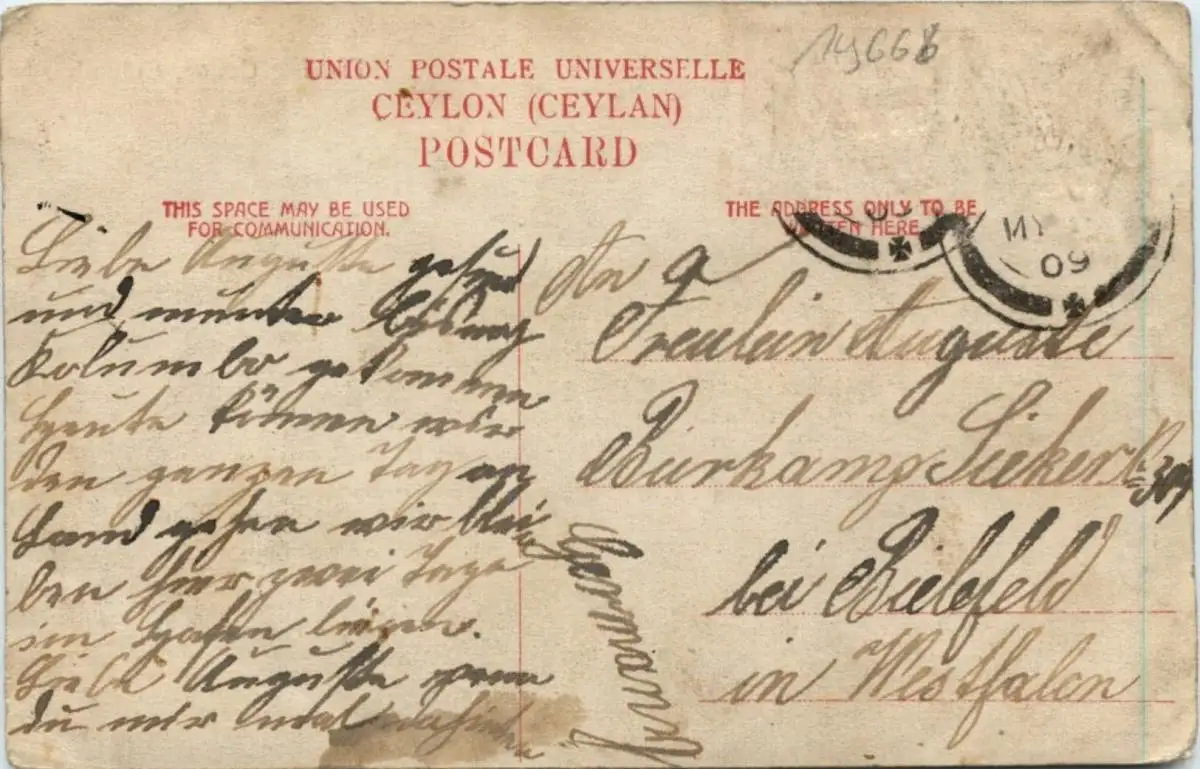 149668
UNION POSTALE UNIVERSELLE
CEYLON (CEYLAN)
POSTCARD
THIS SPACE MAY BE USED
FOR COMMUNICATION.
THE ADDRESS ONLY TO BE
WRITTEN HERE.
MY
09
Liebe Auguste gesund
und munter bis nach
Kolumbo gekommen
Heute können wir
den ganzen Tag an
Land gehen wir blei
ben hier zwei Tage
im Hafen liegen.
Liebe Auguste wenn
du mir mal
An
Freulein Auguste
Bürkamp Sieker
bei Bielefeld
in Westfalen